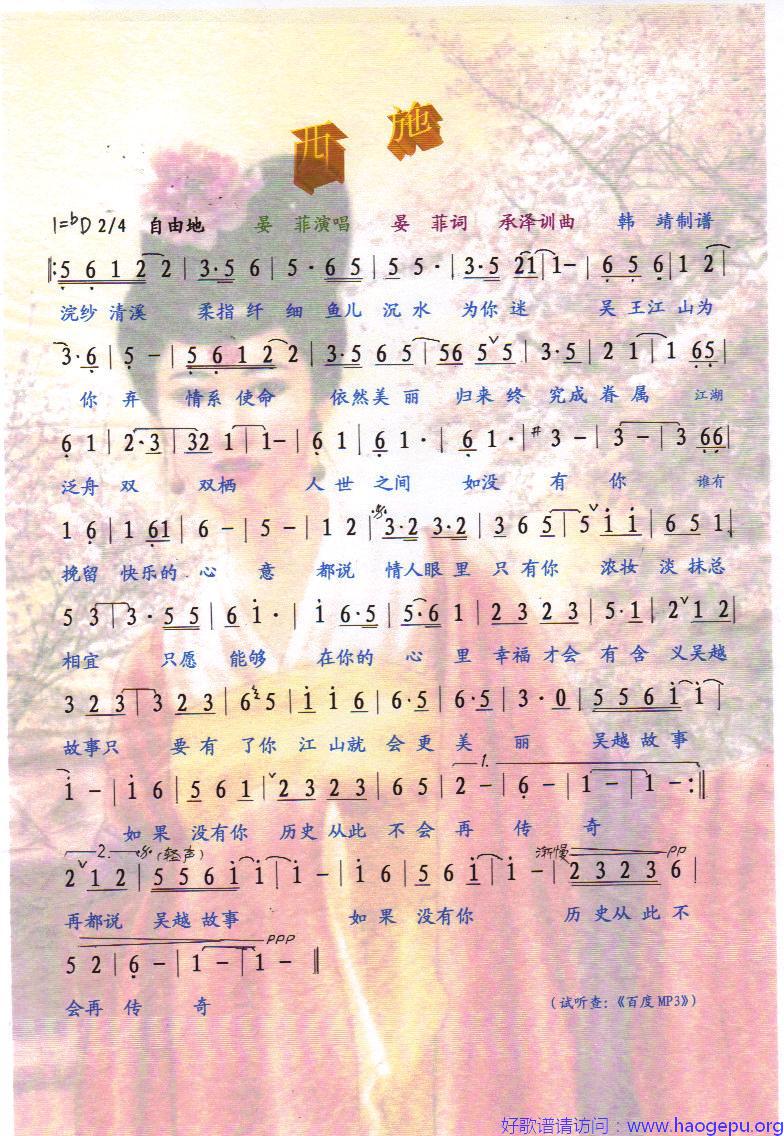 西 施
1=♭D 2/4 自由地 晏 菲演唱 晏 菲词 承泽训曲 韩 靖制谱
‖:5 6 1 2 2 | 3·5 6 | 5 · 6 5 | 5 5 · | 3·5 21 | 1 – | 6 5 6 | 1 2 |
浣纱 清溪 柔指 纤 细 鱼儿 沉 水 为你 迷 吴 王江 山为
3·6 | 5 – | 5 6 1 2 2 | 3·5 6 5 | 56 5 5 | 3·5 | 2 1 | 1 65 |
你 弃 情系 使命 依然美 丽 归来 终 究成 眷 属 江湖
6 1 | 2·3 | 32 1 | 1 – | 6 1 | 6 1 · | 6 1 · | #3 – | 3 – | 3 66 |
泛舟 双 双栖 人 世 之间 如没 有 你 谁有
1 6 | 1 61 | 6 – | 5 – | 1 2 | 3·2 3·2 | 3 6 5 | 5 i i | 6 5 1 |
挽留 快乐的 心 意 都说 情人眼 里 只 有你 浓妆 淡 抹总
5 3 | 3 · 5 5 | 6 i · | i 6·5 | 5·6 1 | 2 3 2 3 | 5·1 | 2 1 2 |
相宜 只愿 能够 在你的 心 里 幸福 才会 有 含 义吴越
3 2 3 | 3 2 3 | 6 5 | i i 6 | 6·5 | 6·5 | 3 · 0 | 5 5 6 i | i |
故事只 要 有 了你 江 山就 会 更 美 丽 吴越 故 事
i – | i 6 | 5 6 1 | 2 3 2 3 | 6 5 | 1. 2 – | 6 – | 1 – | 1 – :‖
如 果 没有你 历史 从此 不 会 再 传 奇
2. (轻声) 渐慢 pp
2 1 2 | 5 5 6 i | i | i – | i 6 | 5 6 i | i – | 2 3 2 3 6 |
再都说 吴越 故事 如 果 没有你 历 史从 此 不
ppp
5 2 | 6 – | 1 – | 1 – ‖
会再 传 奇
(试听查:《百度 MP3》)
好歌谱请访问：www.haogepu.org